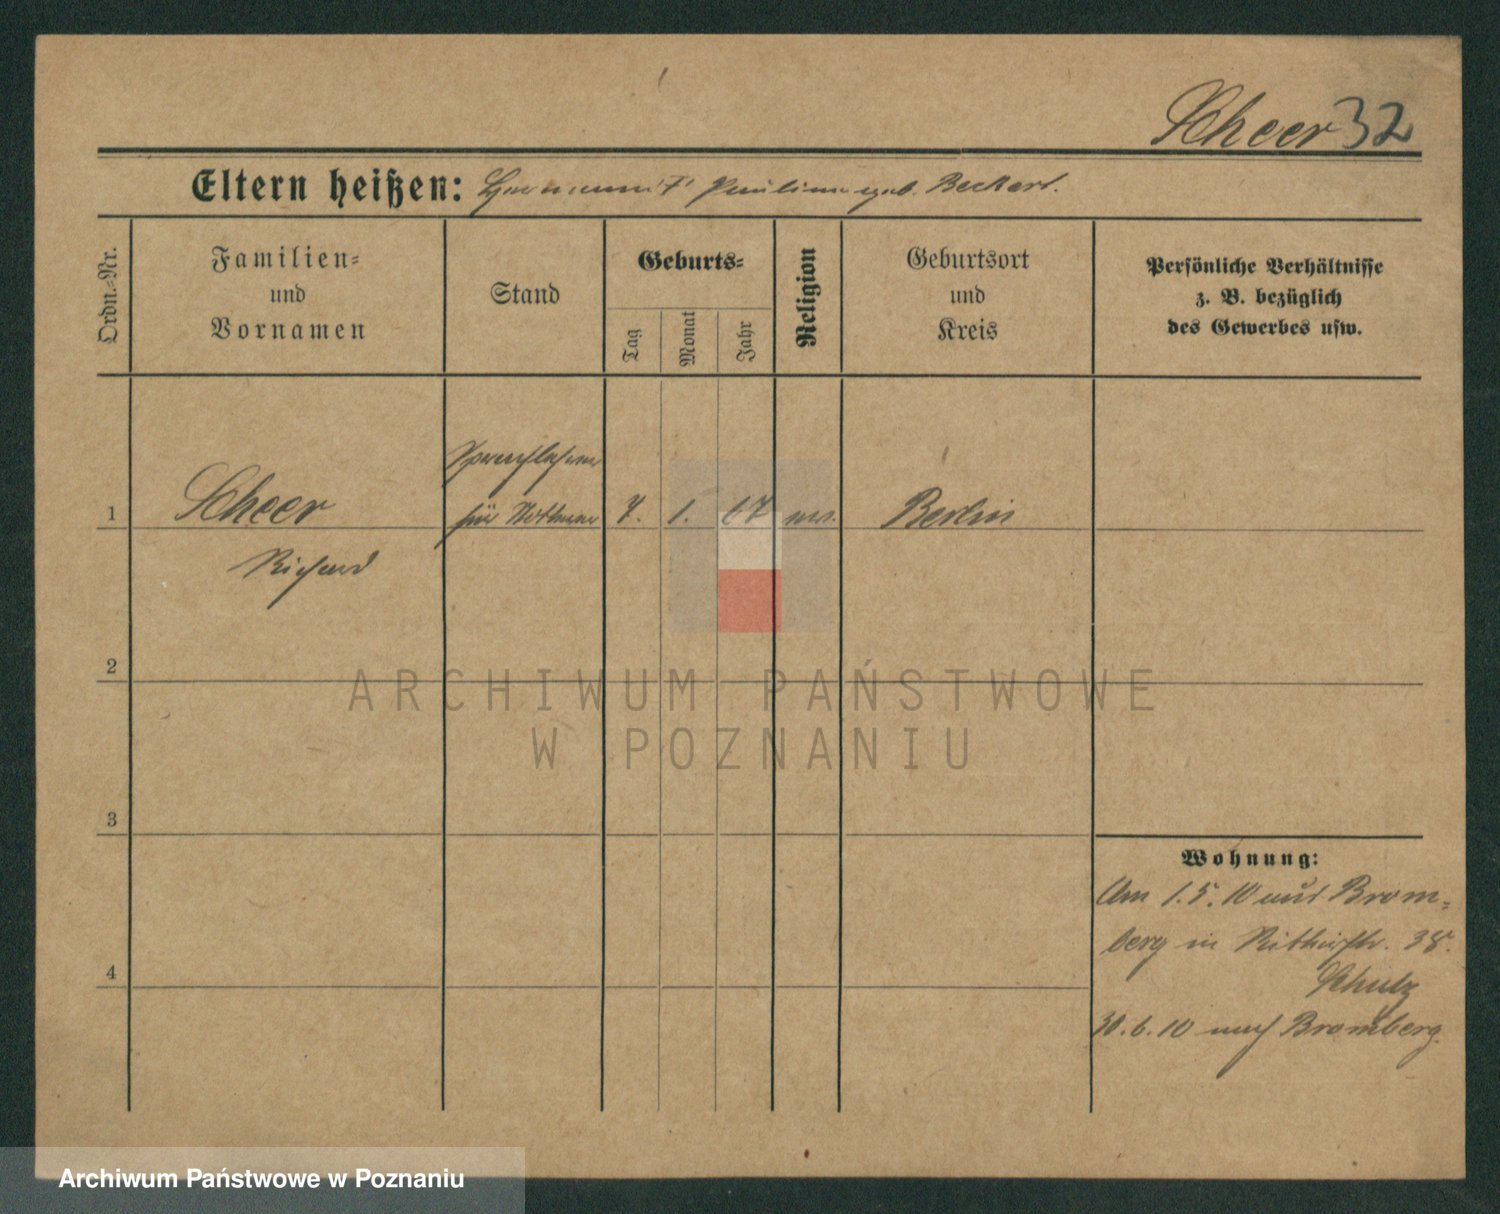 Scheer 32
Eltern heißen: Pauline geb. Beckert.
Ordn.-Nr.
Familien-
und
Vornamen
Stand
Geburts-
Tag
Monat
Jahr
Religion
Geburtsort
und
Kreis
Persönliche Verhältnisse
z. B. bezüglich
des Gewerbes usw.
Sprachlehrer
1 Scheer für 7. 1. 17 Berlin
Richard
2
ARCHIWUM PAŃSTWOWE
W POZNANIU
3
Wohnung:
Am 1.5.10 aus Brom-
berg in 38.
4
Schulz
30.6.10 nach Bromberg.
Archiwum Państwowe w Poznaniu